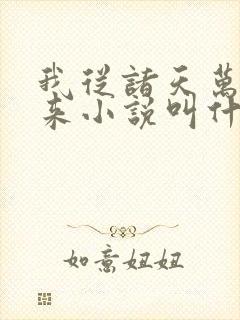 我從諸天萬
來小說叫什
如意妞妞